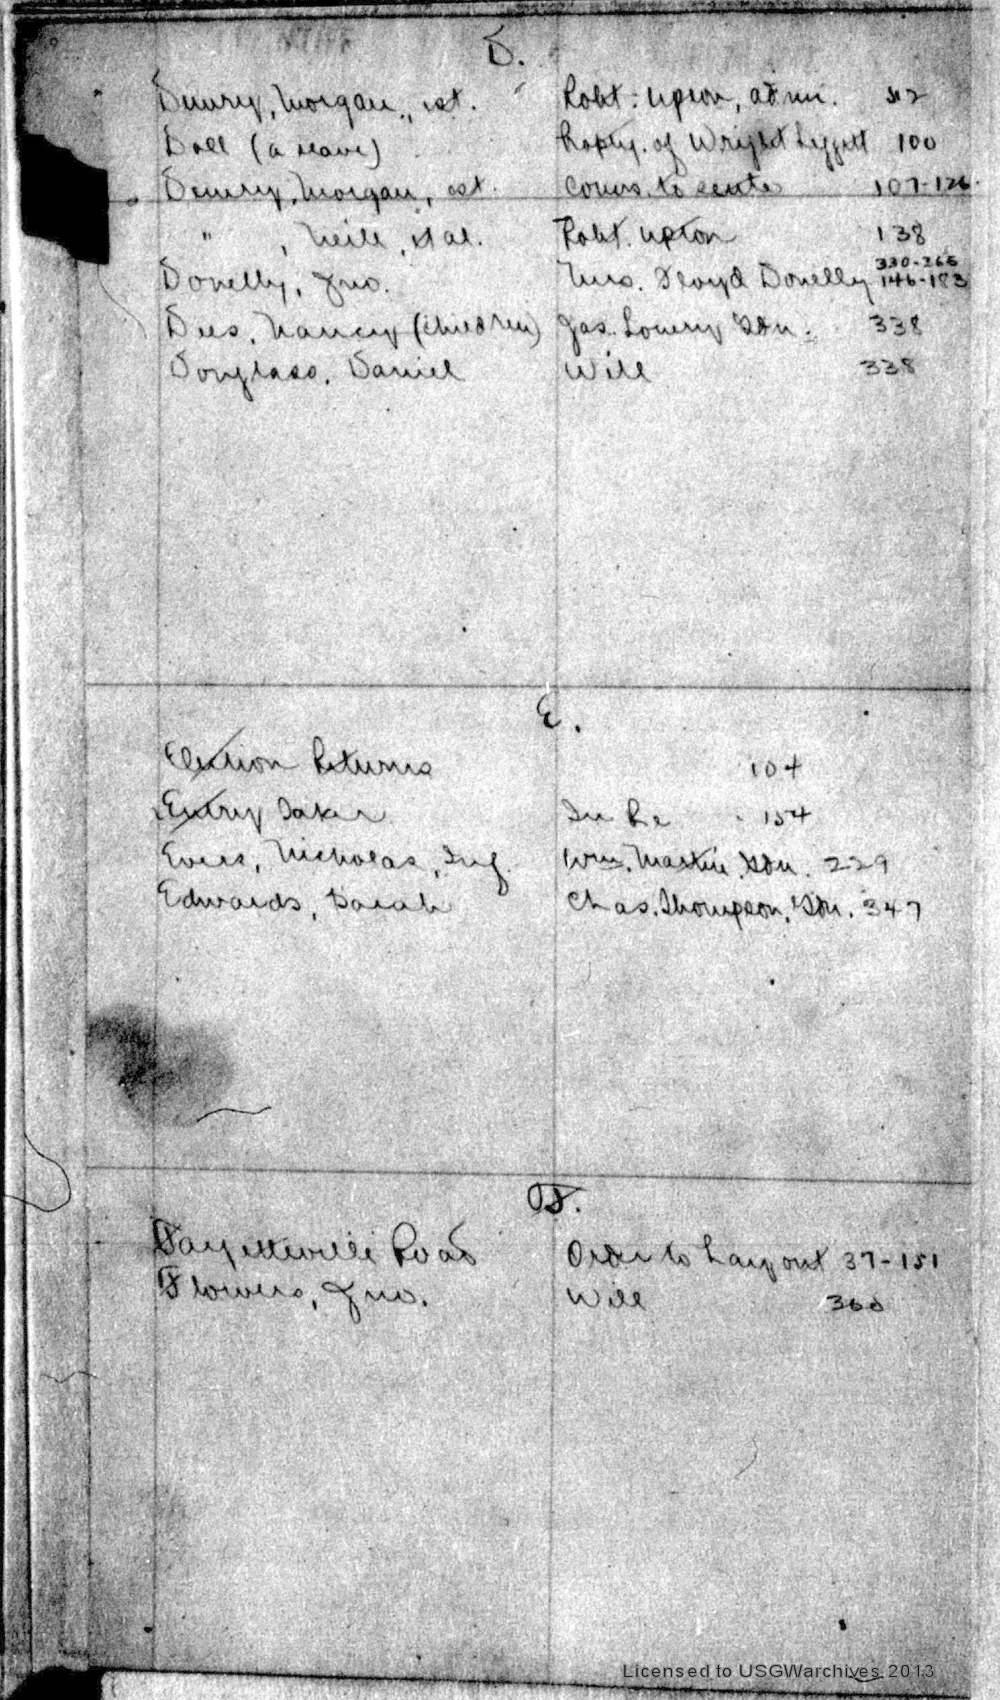 D.
Drury, Morgan, est. Robt. Upton, admr. 52
Doll (a slave) Propty. of Wright Liggett 100
Drury, Morgan, est. Comrs. to settle 107-126
" , Neill, et al. Robt. Upton 138
330-265
Donelly, Jno. Mrs. Floyd Donelly 146-183
Dees, Nancy (Children) Jas. Lowery Gdn. 338
Douglass, Daniel Will 338
E.
Election Returns 104
Entry Taker In Re 154
Evers, Nicholas, Inf. Wm. Martin, Gdn. 229
Edwards, Sarah Chas. Thompson, Gdn. 347
F.
Fayetteville Road Order to Lay out 37-151
Flowers, Jno. Will 360
Licensed to USGWarchives 2013